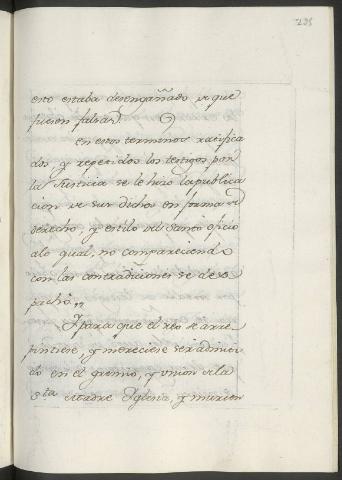 esto estaba desengañado de que
fuesen falsas
en estos terminos ratifica
dos, y repetidos los testigos por
la Justicia se le hizo la publica
cion de sus dichos en forma de
derecho, y estilo del Santo oficio
alo qual, no compareciendo
con las contradiciones se des
pachò
Y para que el reo se arre
pintiese, y mereciese ser admiti
do en el gremio, y union de la
Sta Madre Iglesia, y murien